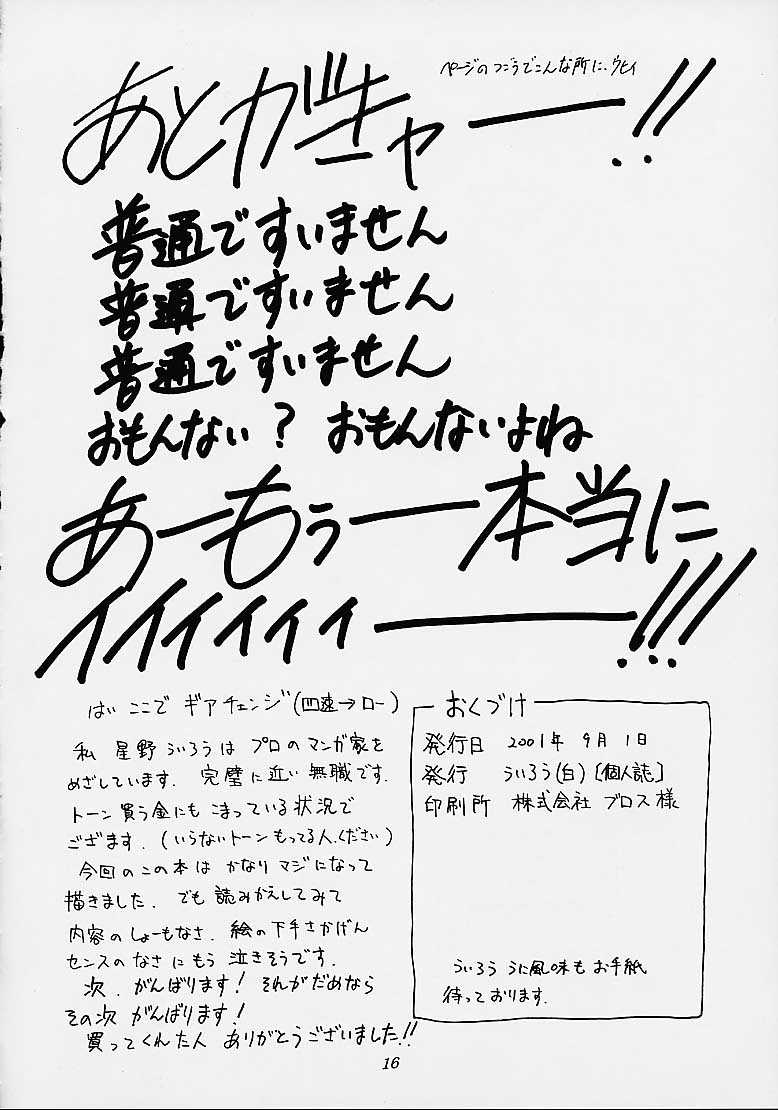 ページのつごうでこんな所に、ウヒィ
あとがキャー!!
普通ですいません
普通ですいません
普通ですいません
おもんない？ おもんないよね
あーもぅー本当に
イイィィィィー!!!
はい ここで ギアチェンジ(四速→ロー)
私 星野ういろうは プロのマンガ家を
めざしています. 完璧に近い無職です.
トーン買う金にも こまっている状況で
ござます. (いらないトーンもってる人、ください)
今回のこの本は かなり マジになって
描きました. でも 読みかえしてみて
内容のしょーもなさ. 絵の下手さかげん
センスのなさにもう 泣きそうです.
次、がんばります! それがだめなら
その次 がんばります!
買ってくれた人 ありがとうございました!!
おくづけ
発行日 2001年 9月1日
発行 ういろう(白) [個人誌]
印刷所 株式会社 ブロス様
ういろう うに風味も お手紙
待っております.
16